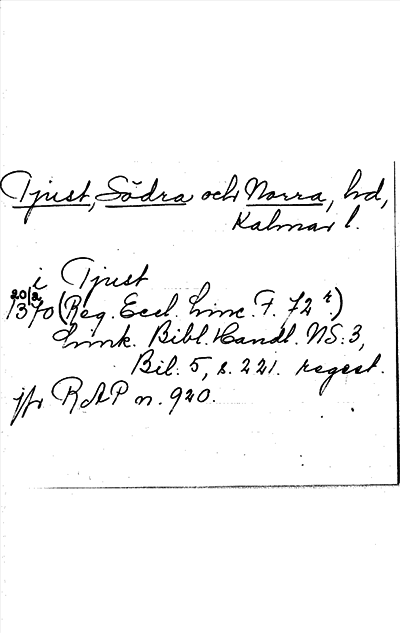 Tjust, Södra och Norra, hd,
Kalmar l.
i Tjust
20/2 1370 (Reg. Eccl. Linc. F. 72 r.)
Link. Bibl. Handl. NS. 3,
Bil. 5, s. 221. regest.
jfr RAP n. 920.